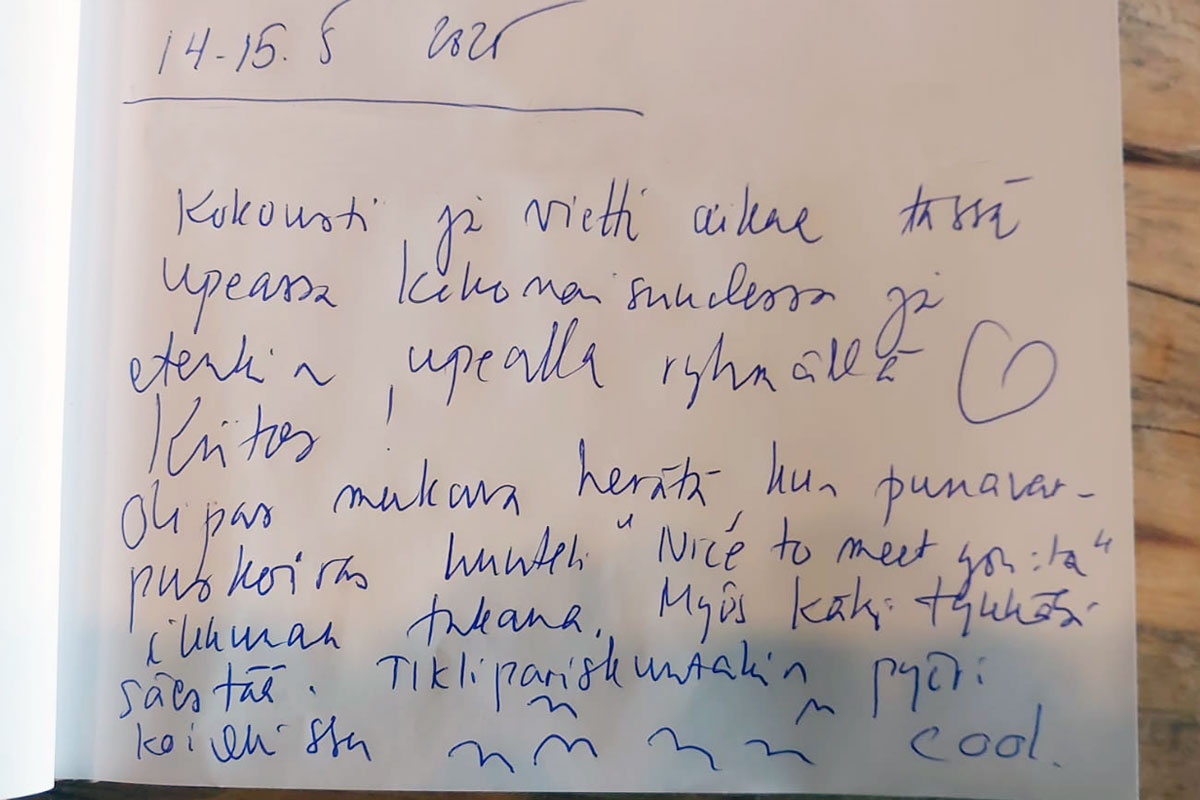 14-15. 5 2025
Kokousti ja vietti aikaa tässä
upeassa kokonaisuudessa ja
etenkin upealla ryhmällä
Kiitos!
Olipas mukava herätä, kun punavar-
puskoiras huuteli "Nice to meet you:ta"
ikkunan takana. Myös käki tykkäsi
säestää. Tikli pariskuntakin pyöri
koivussa cool.